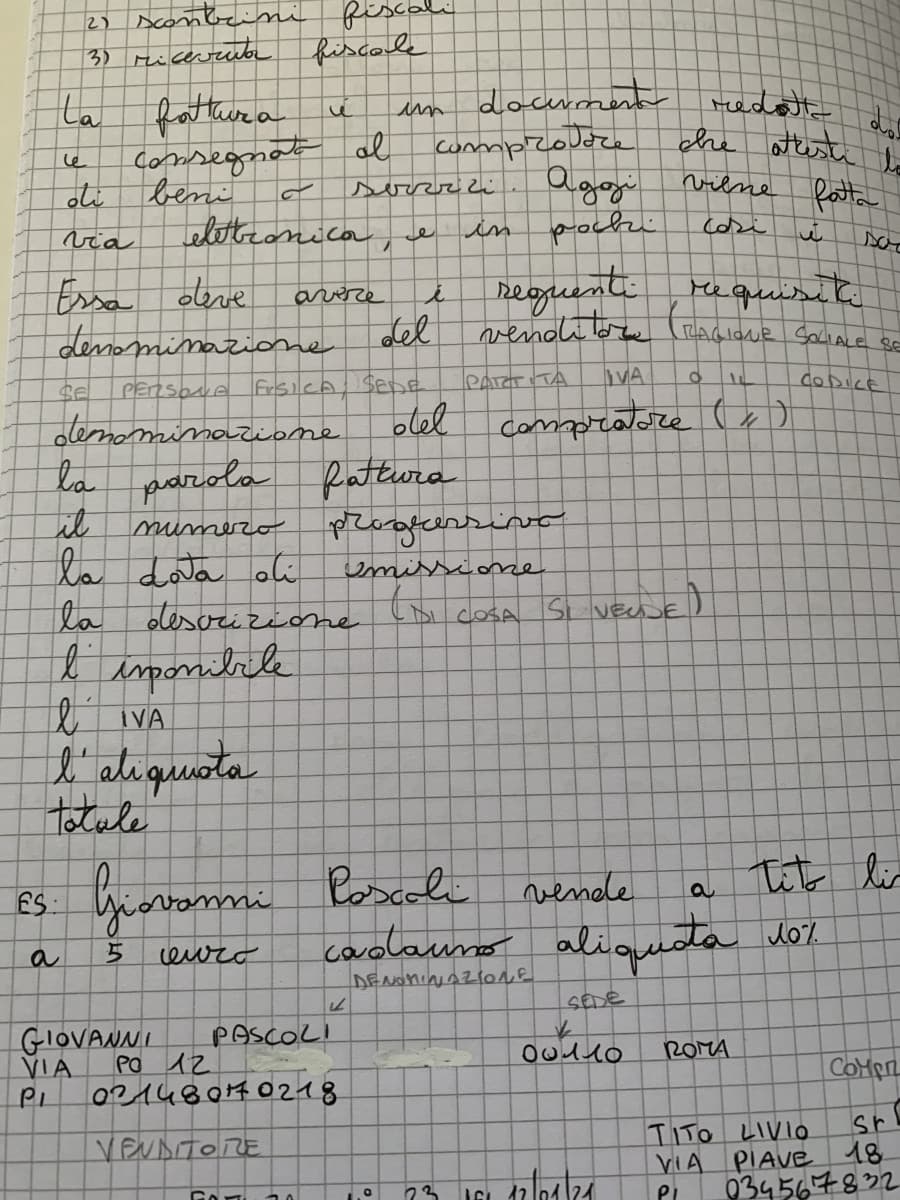 2) scontrini fiscali
3) ricevuta fiscale
La fattura è un documento redatto dal
e consegnato al compratore che attesti la
di beni o servizi. Oggi viene fatta
via elettronica, e in pochi casi è
Essa deve avere i seguenti requisiti
denominazione del venditore (RAGIONE SOCIALE SE
SE PERSONA FISICA, SEDE PARTITA IVA O IL CODICE
denominazione del compratore (〃)
la parola fattura
il numero progressivo
la data di emissione
la descrizione (DI COSA SI VENDE)
l'imponibile
l'IVA
l'aliquota
totale
ES: Giovanni Pascoli vende a Tito
a 5 euro cadauno aliquota 10%
DENOMINAZIONE
SEDE
GIOVANNI PASCOLI
VIA PO 12 00110 ROMA
PI 031480170218
VENDITORE
TITO LIVIO Srl
VIA PIAVE 18
PI 034567832
23 12/01/21